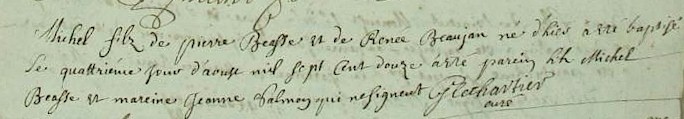 Michel filz de pierre Beasse et de Renee Beaujan né d'hier a esté baptisé
Le quattriéme jour d'aoust mil sept cent douze a esté parein Michel
Beasse et mareine Jeanne Salmon qui ne signent G Lechartier
curé